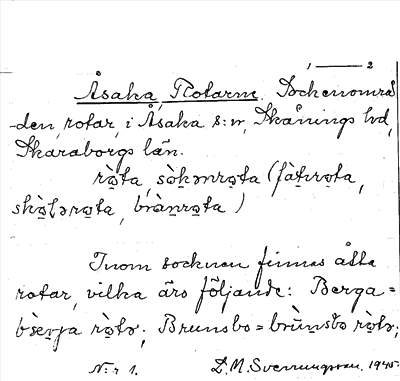 1 — 2
Åsaka, Rotarne. Sockenområ-
den, rotar, i Åsaka s:n, Skånings hd,
Skaraborgs län.
rò̤ta, sòkənro̤ta (fàt͡ɩro̤ta,
skò̤ləro̤ta, brànro̤ta)
Inom socknen finnas åtta
rotar, vilka äro följande: Berga=
rò̤tə; Brunsbo= rò̤tə;
N:r 1. D.M. Svenungsson. 1945.